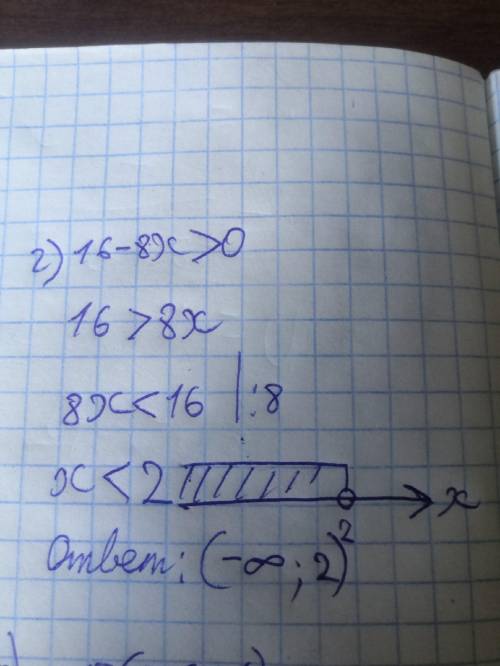 г) 16-8x>0
16 >8x
8x<16 |:8
x<2 x
2
Ответ: (-∞; 2)